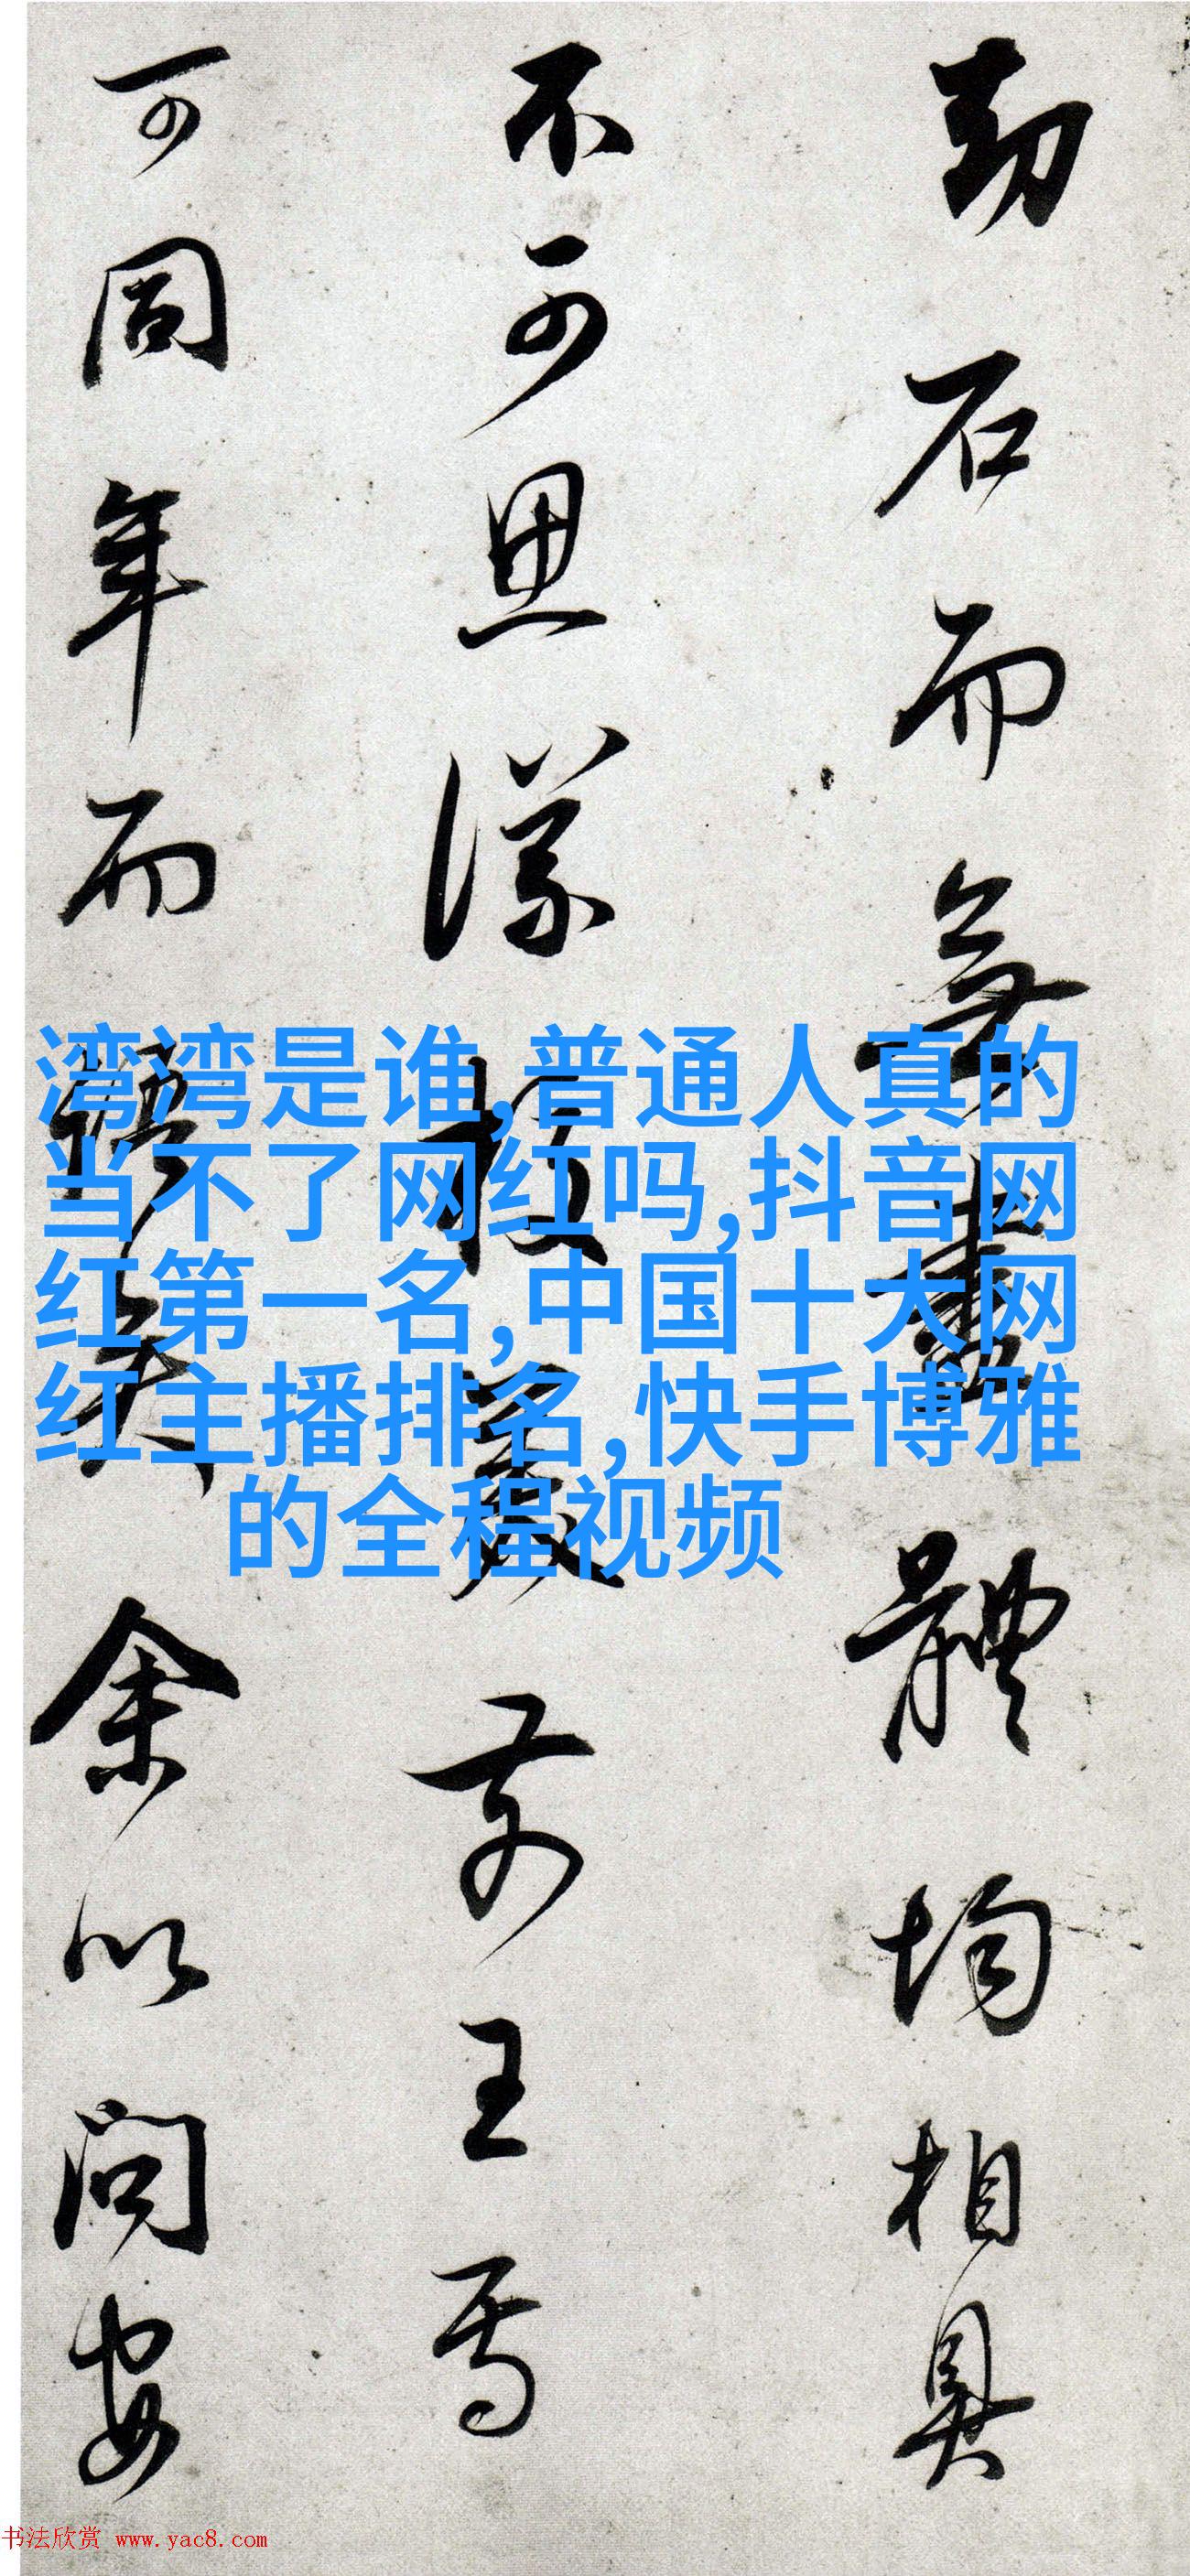 劫石而無盡體均相具
不可思議校箋前王焉
可同年而語矣余以問安
湾湾是谁,普通人真的
当不了网红吗,抖音网
红第一名,中国十大网
红主播排名,快手博雅
的全程视频
书法欣赏 www.yac8.com